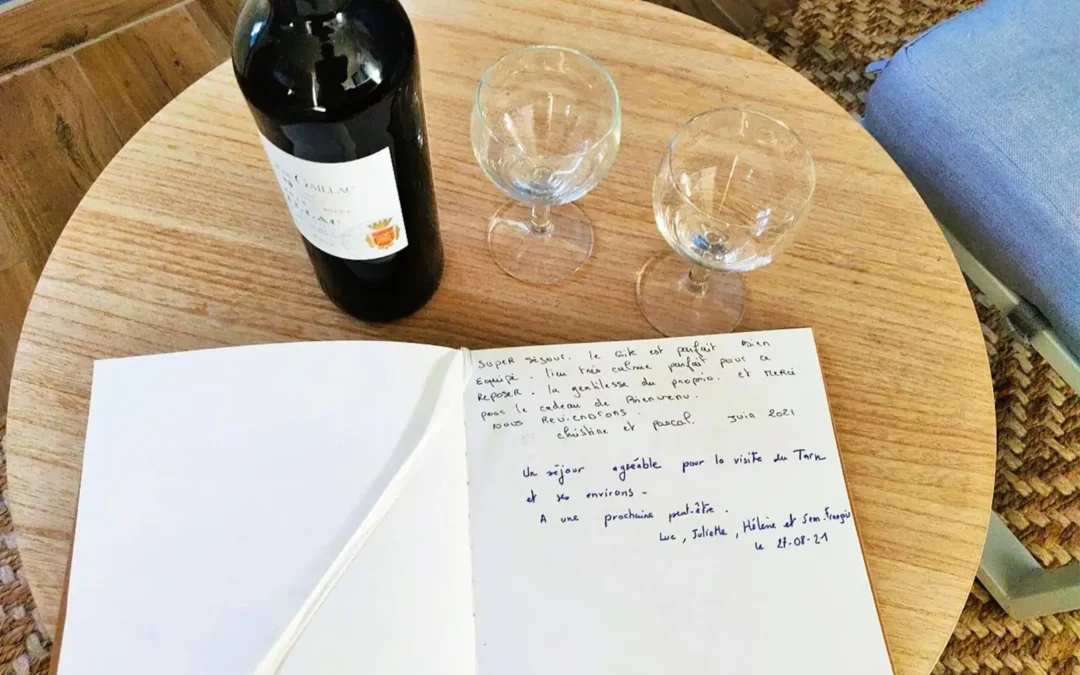 GAILLAC
SUPER Séjour. le Gite est parfait Bien
Equipé. lieu très calme parfait pour ce
Reposer. la gentilesse du proprio. et Merci
pour le cadeau de Bienvenu.
NOUS REVIENDRONS.
christine et pascal. Juin 2021
Un séjour agréable pour la visite du Tarn
et ses environs -
A une prochaine peut-être.
Luc, Juliette, Hélène et Jean-François
le 27-08-21